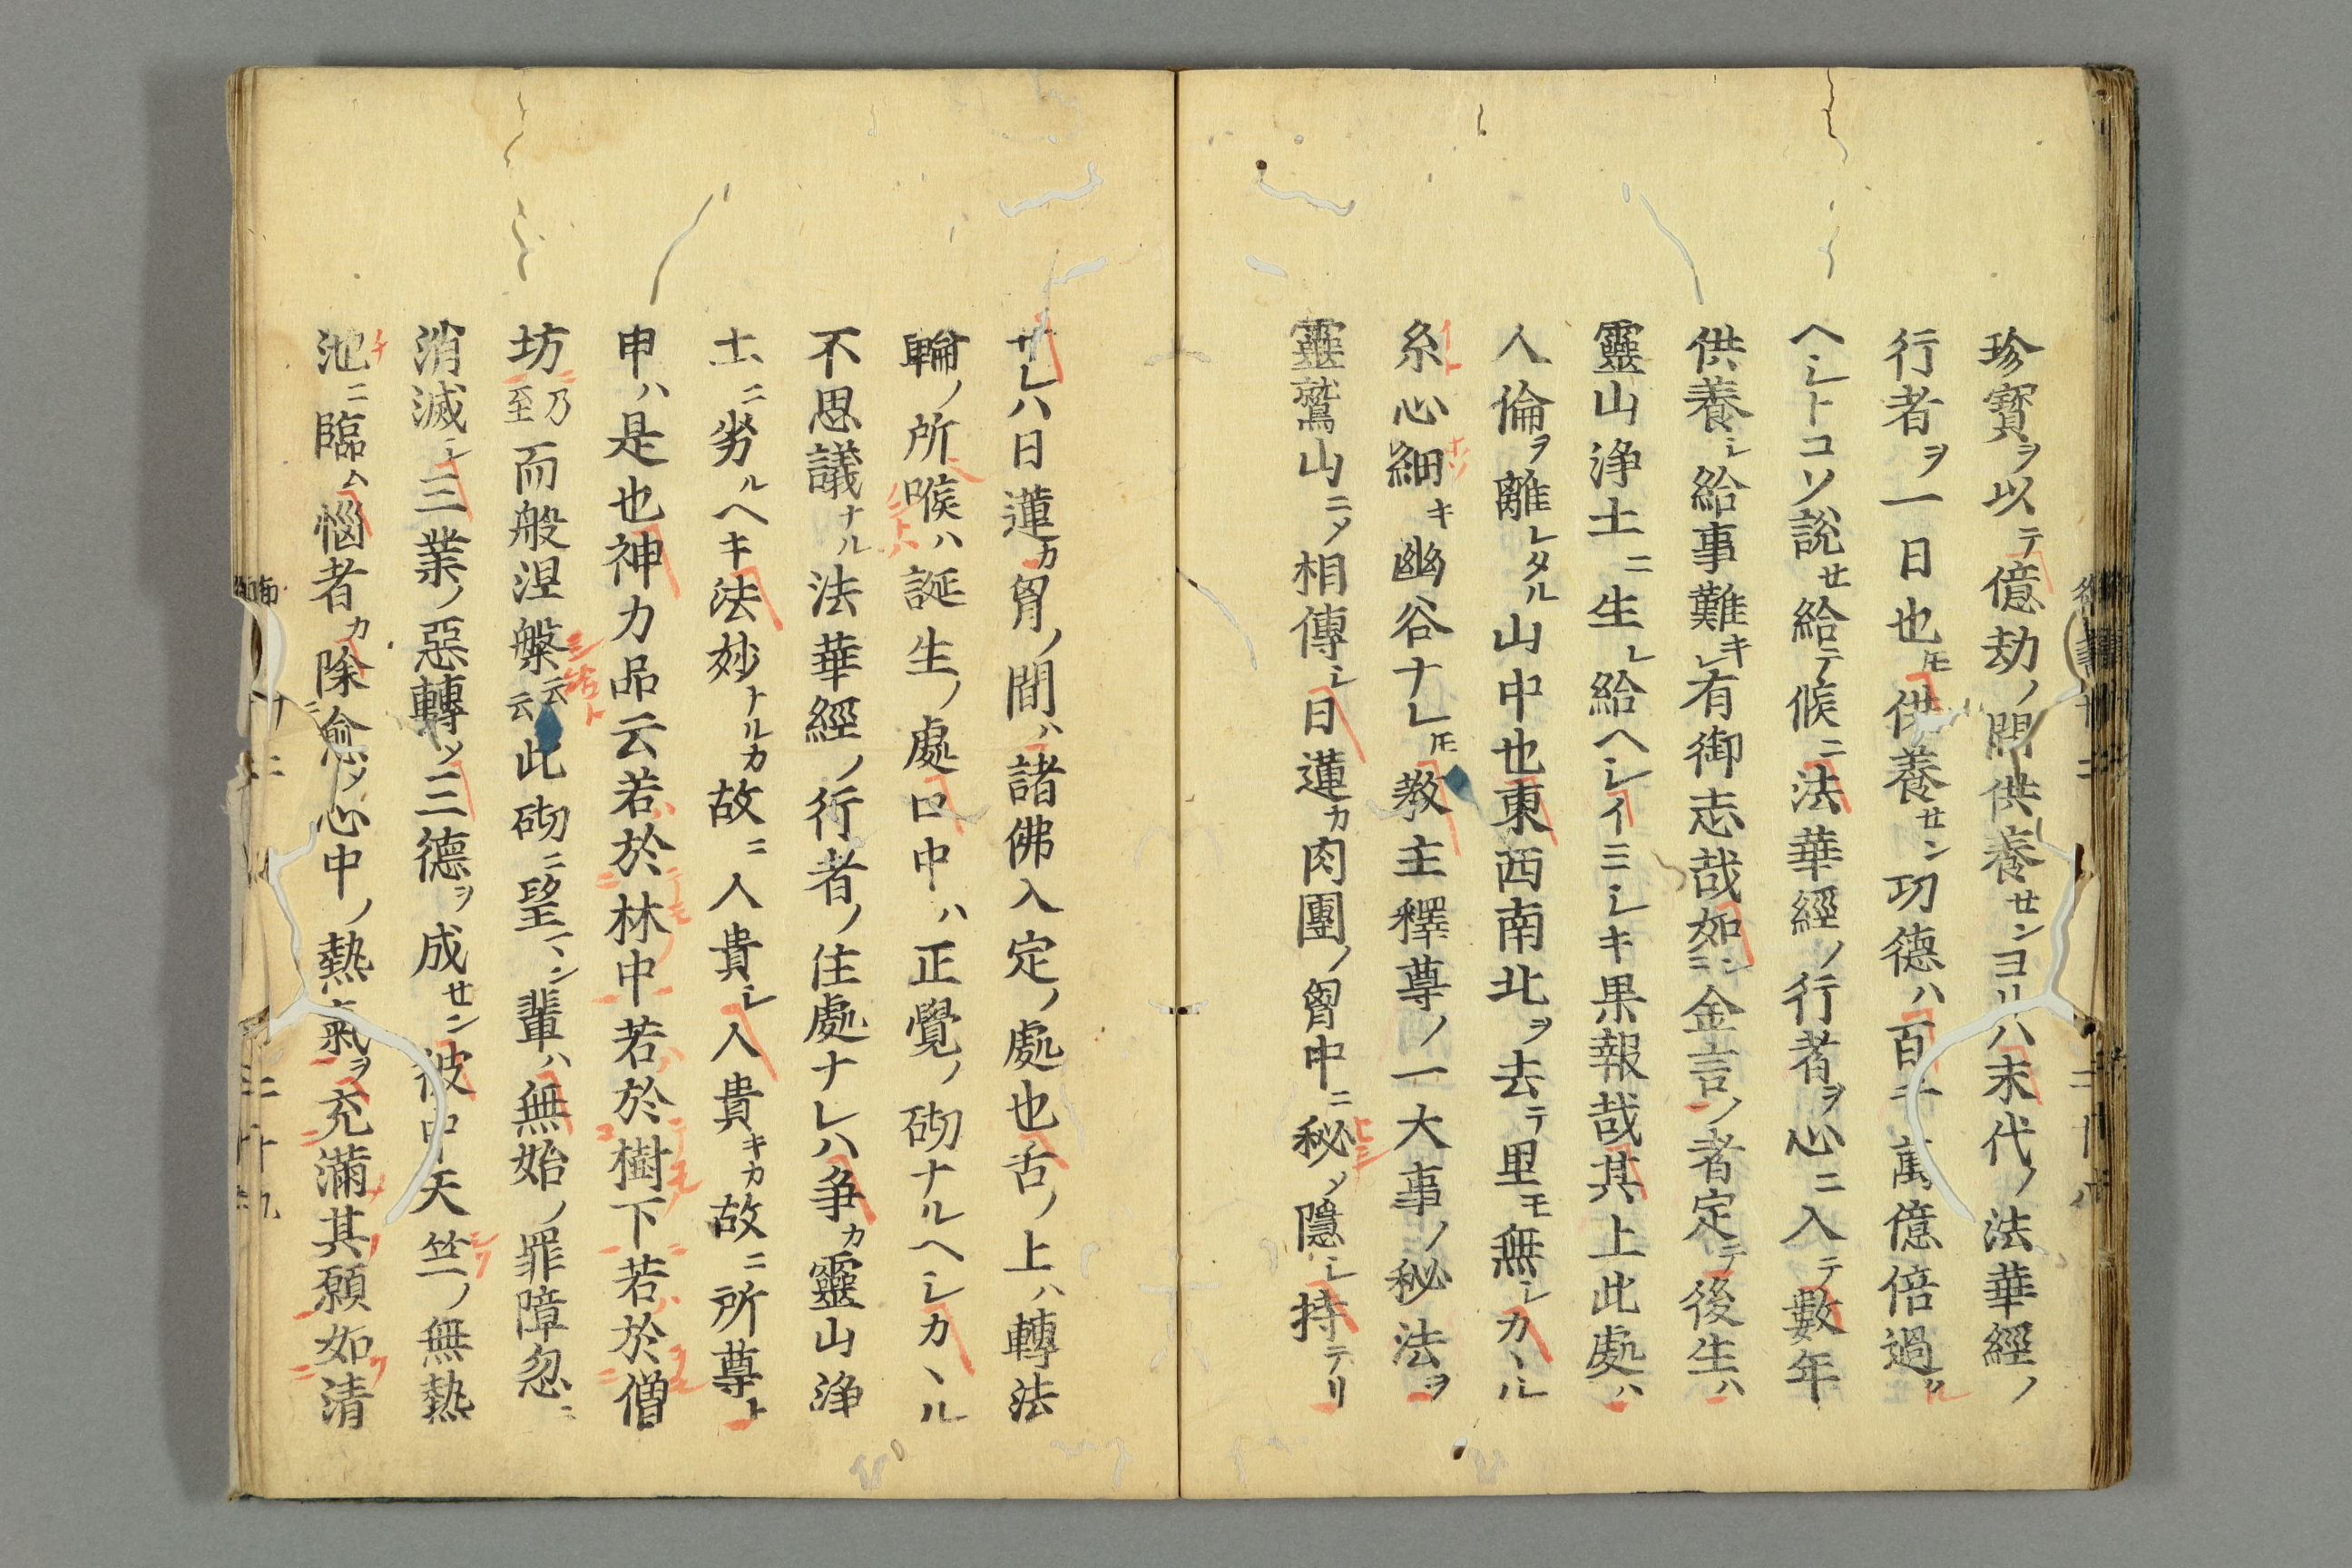 珍寶ヲ以テ億劫ノ間供養センヨリハ末代ノ法華經ノ
行者ヲ一日也𪜈供養セン功德ハ百千萬億倍過ク
ヘシトコソ說セ給テ候ニ法華經ノ行者ヲ心ニ入テ數年
供養シ給事難キレ有御志哉如ンハ金言ノ者定テ後生ハ
靈山淨土ニ生レ給ヘシイミシキ果報哉其上此處ハ
人倫ヲ離レタル山中也東西南北ヲ去テ里モ無シカヽル
糸心細キ幽谷ナレ𪜈教主釋尊ノ一大事ノ秘法ヲ
靈鷲山ニメ相傳シ日蓮カ肉團ノ胷中ニ秘メ隱シ持テリ
サレハ日蓮カ胷ノ間ハ諸佛入定ノ處也舌ノ上ハ轉法
輪ノ所喉ハ誕生ノ處口中ハ正覺ノ砌ナルヘシカヽル
不思議ナル法華經ノ行者ノ住處ナレハ爭カ靈山淨
土ニ劣ルヘキ法妙ナルカ故ニ人貴シ人貴キカ故ニ所尊ト
申ハ是也神力品云若於林中若於樹下若於僧
坊乃至而般涅槃云云此砌ニ望マン輩ハ無始ノ罪障忽ニ
消滅シ三業ノ惡轉メ三德ヲ成セン彼中天竺ノ無熱
池ニ臨ム惱者カ除愈メ心中ノ熱氣ヲ充滿其願如清